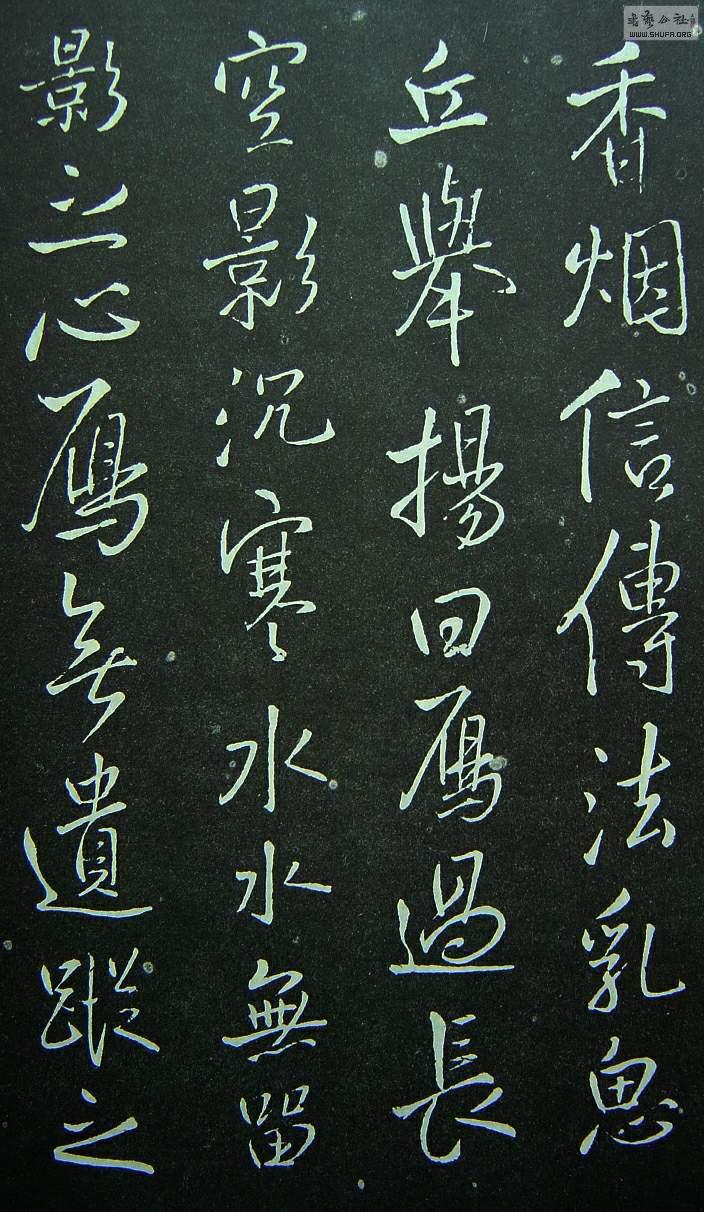 香烟信傳法乳恩
丘舉揚曰鴈過長
空影沉寒水水無留
影之心鴈無遺蹤之
书艺公社
WWW.SHUFA.ORG